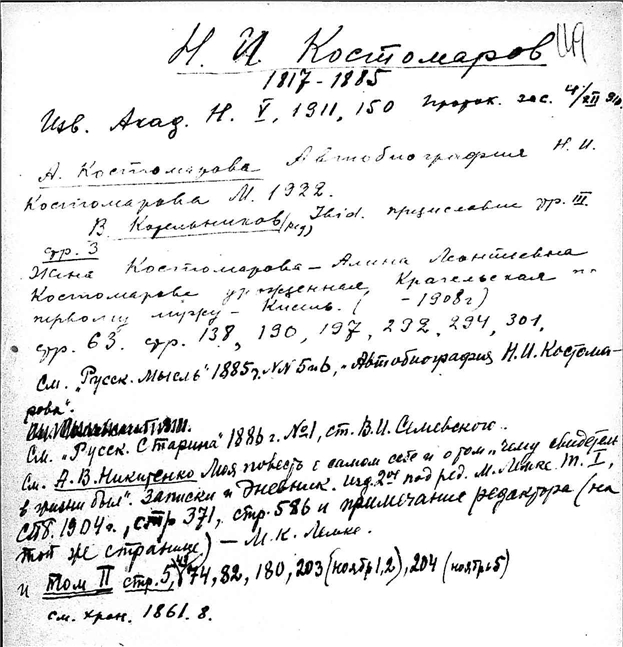 Н. И. Костомаров
1817-1885
Изв. Акад. Н. V, 1911, 150 зас. 4/XII
А. Костомарова Автобиография Н. И.
Костомарова М. 1922.
В. Котельников (ред) Ibid. предисловие стр. III
стр. 3
Жена Костомарова – Алина Леонтьевна
Костомарова урожденная Крагельская по
первому мужу – Кисель. ( -1908г)
стр. 63. стр. 138, 190, 197, 292, 294, 301,
См. „Русск. Мысль" 1885г. №№ 5 и 6, „Автобиография Н. И. Костома-
рова".
См. „Русск. Старина" 1886 г. №1, ст. В. И. Семевского.
См. А. В. Никитенко Моя повесть о самом себе и о том „чему свидетель
в жизни был". Записки и Дневник. изд. 2ое под ред. М. Лемке т. I,
СПб. 1904г., стр 371, стр. 586 и примечание редактора (на
той же странице.) – М. К. Лемке.
и Том II стр. 5, 74, 82, 180, 203 (ноябрь 1, 2), 204 (ноябрь 5)
см. хран. 1861. 8.